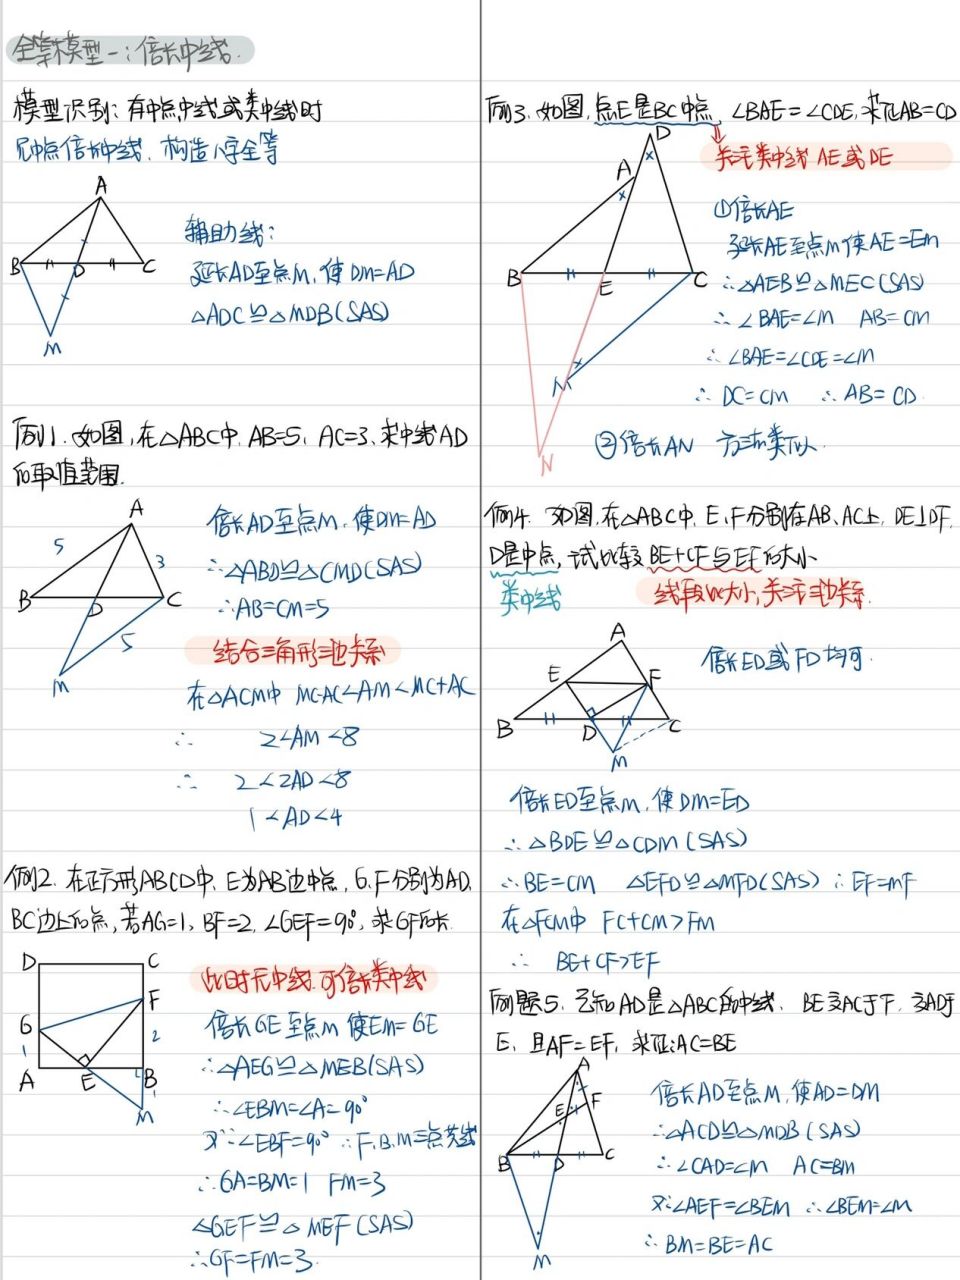 全等模型一:倍长中线.
模型识别:有中点,中线或类中线时
见中点倍长中线,构造8字全等
A
B D C
M
辅助线:
延长AD至点M,使DM=AD
△ADC≌△MDB(SAS)
例1.如图,在△ABC中,AB=5,AC=3,求中线AD
的取值范围.
A
5 3
B D C
5
M
倍长AD至点M,使DM=AD
∴△ABD≌△CMD(SAS)
∴AB=CM=5
结合三角形三边关系
在△ACM中 MC-AC<AM<MC+AC
∴ 2<AM<8
∴ 2<2AD<8
1<AD<4
例2.在正方形ABCD中,E为AB边中点,G,F分别为AD,
BC边上的点,若AG=1,BF=2,∠GEF=90°,求GF的长.
D C
F
G
1 2
A E B
1
M
此时无中线,可倍长类中线
倍长GE至点M 使EM=GE
∴△AEG≌△MEB(SAS)
∴∠EBM=∠A=90°
又∵∠EBF=90° ∴F,B,M三点共线
∴GA=BM=1 FM=3
△GEF≌△MEF(SAS)
∴GF=FM=3.
例3.如图,点E是BC中点,∠BAE=∠CDE,求证AB=CD
关注类中线AE或DE
D
A
B E C
M
N
①倍长AE
延长AE至点M使AE=EM
∴△AEB≌△MEC(SAS)
∴∠BAE=∠M AB=CM
∴∠BAE=∠CDE=∠M
∴DC=CM ∴AB=CD.
②倍长AN 方法类似.
例4.如图,在△ABC中,E,F分别在AB,AC上,DE⊥DF,
D是中点,试比较BE+CF与EF的大小
类中线 线段比大小,关注三边关系.
A
E F
B D C
M
倍长ED或FD均可.
倍长ED至点M,使DM=ED
∴△BDE≌△CDM(SAS)
∴BE=CM △EFD≌△MFD(SAS) ∴EF=MF
在△FCM中 FC+CM>FM
∴ BE+CF>EF
例题5.已知AD是△ABC的中线,BE交AC于F,交AD于
E,且AF=EF,求证:AC=BE
A
E F
B D C
M
倍长AD至点M,使AD=DM
∴△ACD≌△MDB(SAS)
∴∠CAD=∠M AC=BM
又∵∠AEF=∠BEM ∴∠BEM=∠M
∴BM=BE=AC